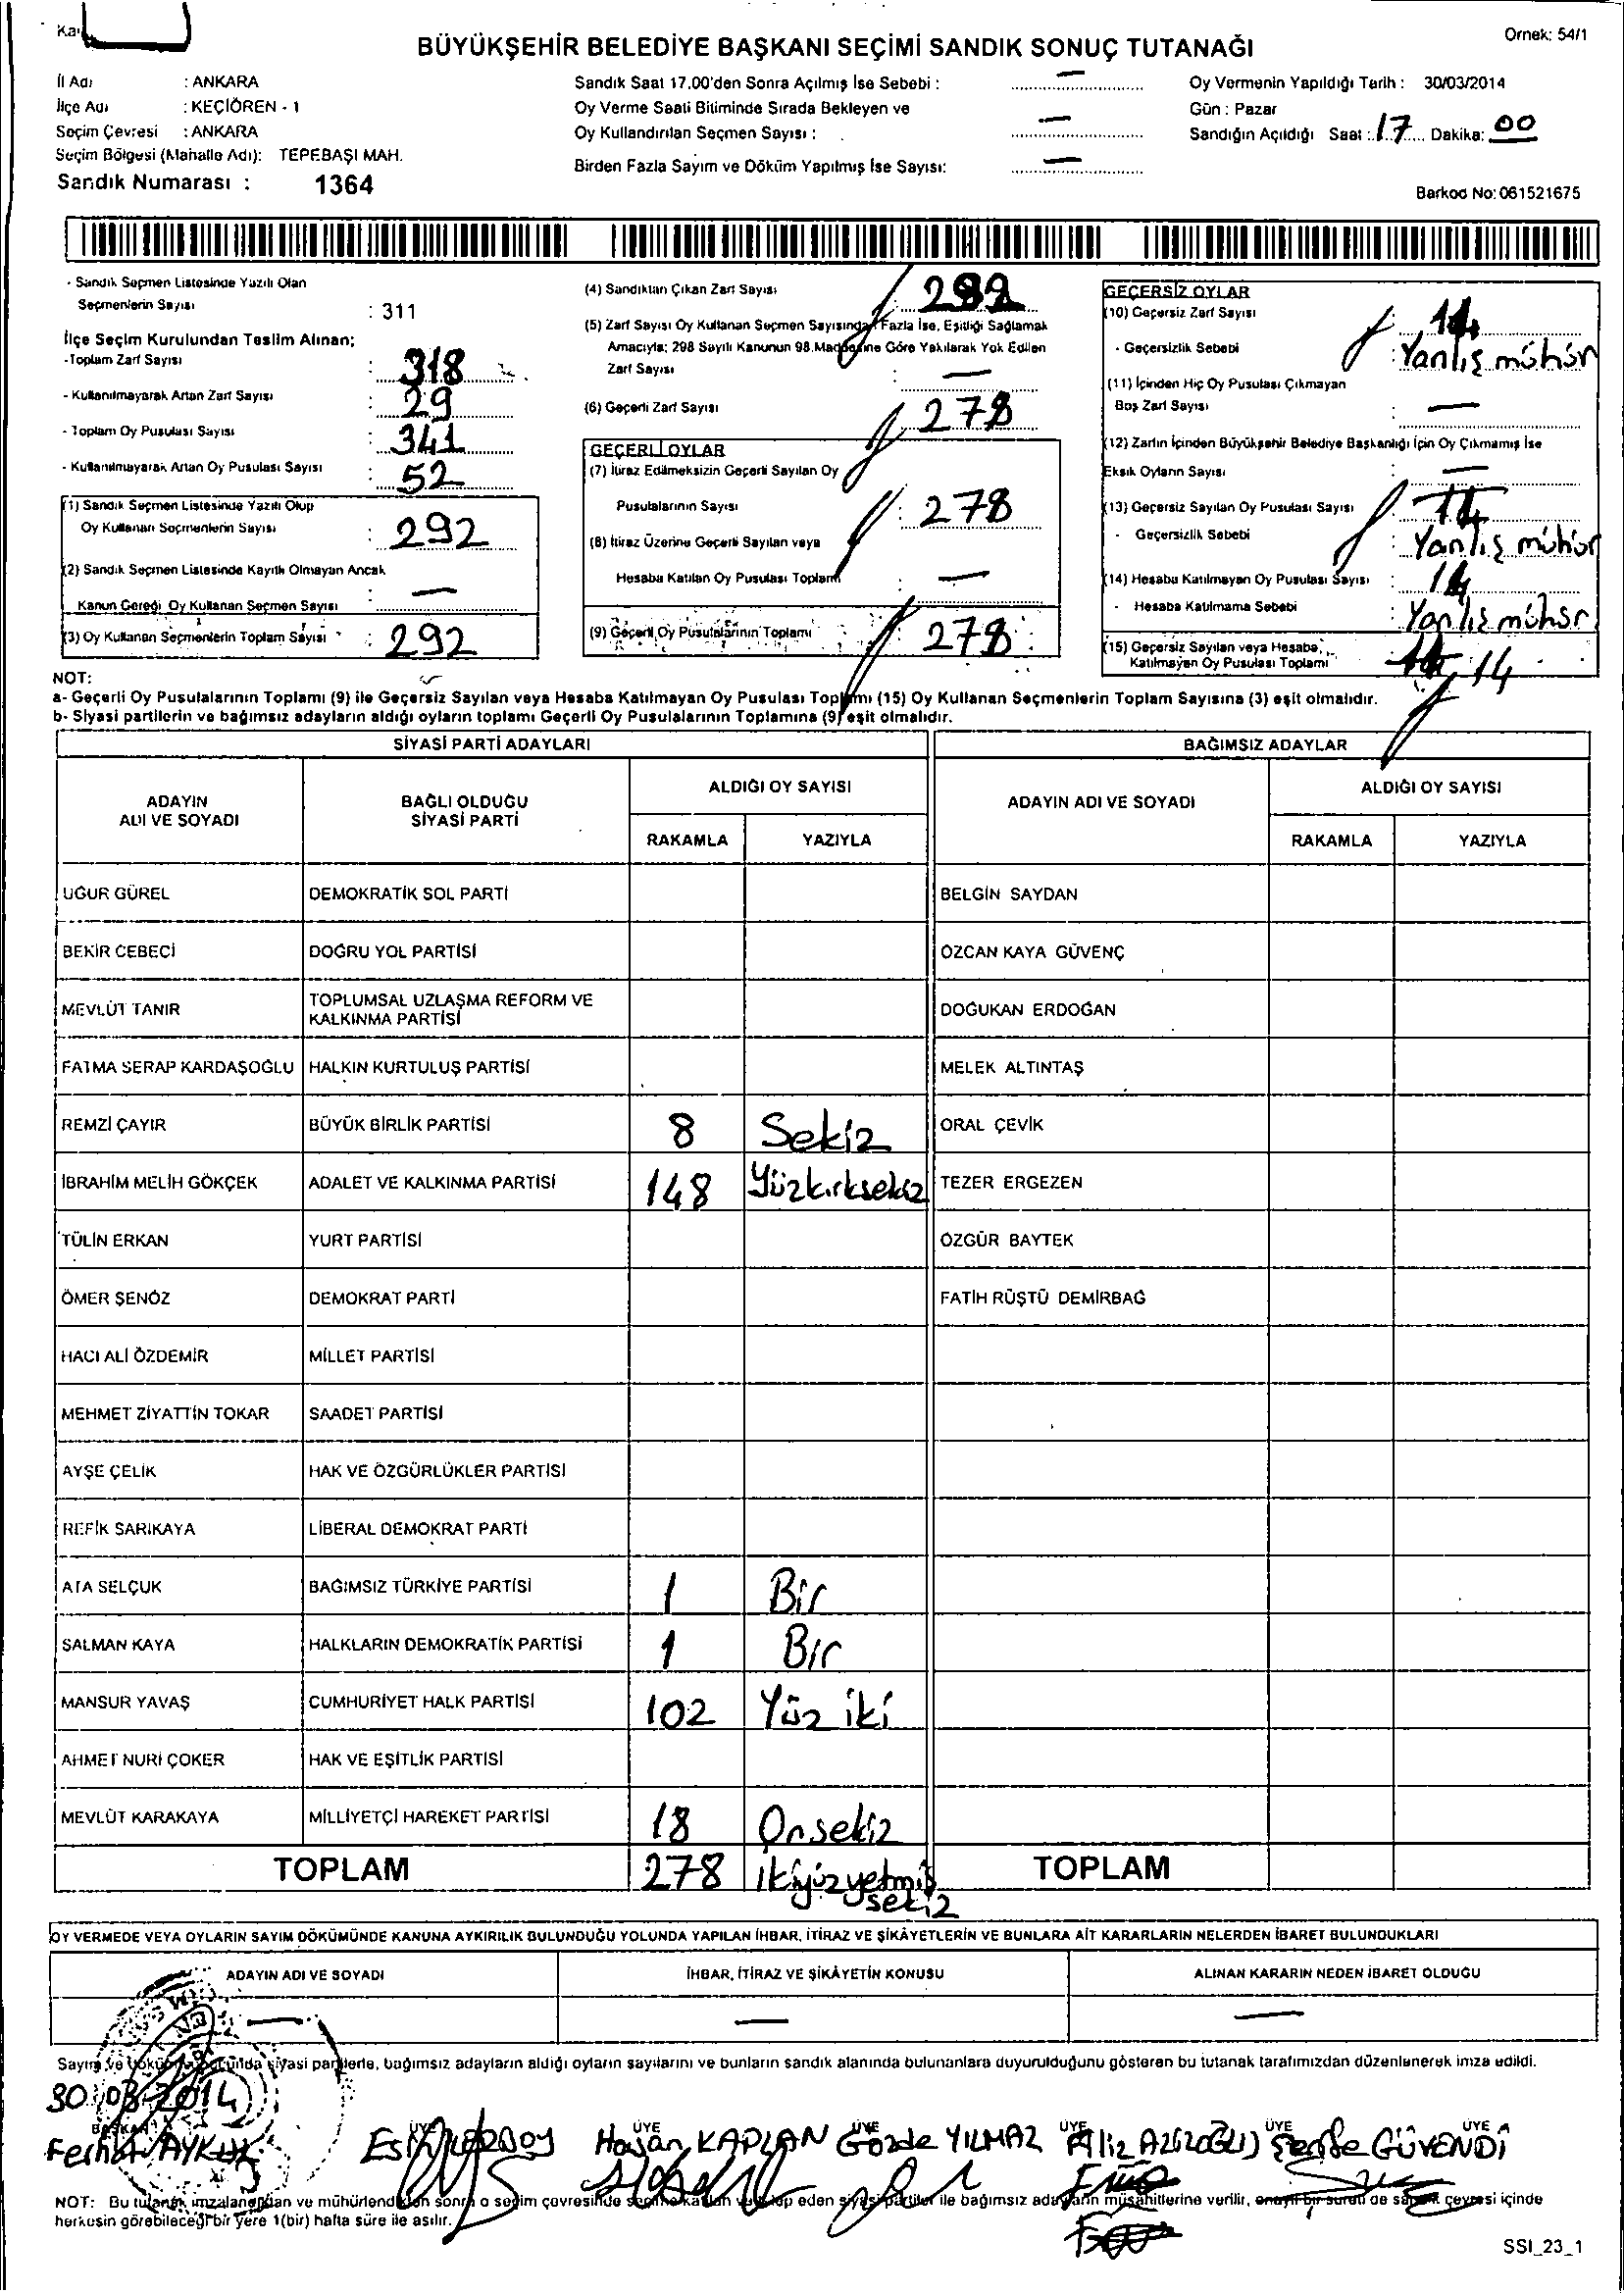 Örnek: 54/1
BÜYÜKŞEHİR BELEDİYE BAŞKANI SEÇİMİ SANDIK SONUÇ TUTANAĞI
İl Adı : ANKARA
İlçe Adı : KEÇİÖREN - 1
Seçim Çevresi : ANKARA
Seçim Bölgesi (Mahalle Adı): TEPEBAŞI MAH.
Sandık Numarası : 1364
Sandık Saat 17.00'den Sonra Açılmış İse Sebebi : —
Oy Verme Saati Bitiminde Sırada Bekleyen ve
Oy Kullandırılan Seçmen Sayısı : —
Birden Fazla Sayım ve Döküm Yapılmış İse Sayısı: —
Oy Vermenin Yapıldığı Tarih : 30/03/2014
Gün : Pazar
Sandığın Açıldığı Saat : 17 Dakika: 00
Barkod No: 061521675
- Sandık Seçmen Listesinde Yazılı Olan
Seçmenlerin Sayısı : 311
İlçe Seçim Kurulundan Teslim Alınan;
-Toplam Zarf Sayısı : 318
- Kullanılmayarak Artan Zarf Sayısı : 29
- Toplam Oy Pusulası Sayısı : 341
- Kullanılmayarak Artan Oy Pusulası Sayısı : 52
(1) Sandık Seçmen Listesinde Yazılı Olup
Oy Kullanan Seçmenlerin Sayısı : 292
(2) Sandık Seçmen Listesinde Kayıtlı Olmayan Ancak
Kanun Gereği Oy Kullanan Seçmen Sayısı : —
(3) Oy Kullanan Seçmenlerin Toplam Sayısı : 292
(4) Sandıktan Çıkan Zarf Sayısı : 292
(5) Zarf Sayısı Oy Kullanan Seçmen Sayısından Fazla İse, Eşitliği Sağlamak
Amacıyla; 298 Sayılı Kanunun 98.Maddesine Göre Yakılarak Yok Edilen
Zarf Sayısı : —
(6) Geçerli Zarf Sayısı : 278
GEÇERLİ OYLAR
(7) İtiraz Edilmeksizin Geçerli Sayılan Oy
Pusulalarının Sayısı : 278
(8) İtiraz Üzerine Geçerli Sayılan veya
Hesaba Katılan Oy Pusulası Toplamı : —
(9) Geçerli Oy Pusulalarının Toplamı : 278
GEÇERSİZ OYLAR
(10) Geçersiz Zarf Sayısı : 14
- Geçersizlik Sebebi : Yanlış mühür
(11) İçinden Hiç Oy Pusulası Çıkmayan
Boş Zarf Sayısı : —
(12) Zarfın İçinden Büyükşehir Belediye Başkanlığı İçin Oy Çıkmamış İse
Eksik Oyların Sayısı : —
(13) Geçersiz Sayılan Oy Pusulası Sayısı : 14
- Geçersizlik Sebebi : Yanlış mühür
(14) Hesaba Katılmayan Oy Pusulası Sayısı : 14
- Hesaba Katılmama Sebebi : Yanlış mühür
(15) Geçersiz Sayılan veya Hesaba
Katılmayan Oy Pusulası Toplamı : 14
NOT:
a- Geçerli Oy Pusulalarının Toplamı (9) ile Geçersiz Sayılan veya Hesaba Katılmayan Oy Pusulası Toplamı (15) Oy Kullanan Seçmenlerin Toplam Sayısına (3) eşit olmalıdır.
b- Siyasi partilerin ve bağımsız adayların aldığı oyların toplamı Geçerli Oy Pusulalarının Toplamına (9) eşit olmalıdır.
SİYASİ PARTİ ADAYLARI BAĞIMSIZ ADAYLAR
ADAYIN ADI VE SOYADI BAĞLI OLDUĞU SİYASİ PARTİ ALDIĞI OY SAYISI ADAYIN ADI VE SOYADI ALDIĞI OY SAYISI
RAKAMLA YAZIYLA RAKAMLA YAZIYLA
UĞUR GÜREL DEMOKRATİK SOL PARTİ BELGİN SAYDAN
BEKİR CEBECİ DOĞRU YOL PARTİSİ ÖZCAN KAYA GÜVENÇ
MEVLÜT TANIR TOPLUMSAL UZLAŞMA REFORM VE KALKINMA PARTİSİ DOĞUKAN ERDOĞAN
FATMA SERAP KARDAŞOĞLU HALKIN KURTULUŞ PARTİSİ MELEK ALTINTAŞ
REMZİ ÇAYIR BÜYÜK BİRLİK PARTİSİ 8 Sekiz ORAL ÇEVİK
İBRAHİM MELİH GÖKÇEK ADALET VE KALKINMA PARTİSİ 148 Yüzkırksekiz TEZER ERGEZEN
TÜLİN ERKAN YURT PARTİSİ ÖZGÜR BAYTEK
ÖMER ŞENÖZ DEMOKRAT PARTİ FATİH RÜŞTÜ DEMİRBAĞ
HACI ALİ ÖZDEMİR MİLLET PARTİSİ
MEHMET ZİYATTİN TOKAR SAADET PARTİSİ
AYŞE ÇELİK HAK VE ÖZGÜRLÜKLER PARTİSİ
REFİK SARIKAYA LİBERAL DEMOKRAT PARTİ
ATA SELÇUK BAĞIMSIZ TÜRKİYE PARTİSİ 1 Bir
SALMAN KAYA HALKLARIN DEMOKRATİK PARTİSİ 1 Bir
MANSUR YAVAŞ CUMHURİYET HALK PARTİSİ 102 Yüz iki
AHMET NURİ ÇOKER HAK VE EŞİTLİK PARTİSİ
MEVLÜT KARAKAYA MİLLİYETÇİ HAREKET PARTİSİ 18 Onsekiz
TOPLAM 278 İkiyüzyetmiş sekiz TOPLAM
OY VERMEDE VEYA OYLARIN SAYIM DÖKÜMÜNDE KANUNA AYKIRILIK BULUNDUĞU YOLUNDA YAPILAN İHBAR, İTİRAZ VE ŞİKÂYETLERİN VE BUNLARA AİT KARARLARIN NELERDEN İBARET BULUNDUKLARI
ADAYIN ADI VE SOYADI İHBAR, İTİRAZ VE ŞİKÂYETİN KONUSU ALINAN KARARIN NEDEN İBARET OLDUĞU
— — —
Sayım ve siyasi partilerle, bağımsız adayların aldığı oyların sayılarını ve bunların sandık alanında bulunanlara duyurulduğunu gösteren bu tutanak tarafımızdan düzenlenerek imza edildi.
30.03.2014
BAŞKAN ÜYE ÜYE ÜYE ÜYE ÜYE ÜYE
Ferhat AYKUK Hasan KAPLAN Gözde YILMAZ Filiz AZİZOĞLU Şerife GÜVENDİ
NOT: Bu tutanak imzalandıktan ve mühürlendikten sonra o seçim çevresinde seçime katılan ve eden siyasi partiler ile bağımsız adayların müşahitlerine verilir, onaylı bir sureti de sandık çevresi içinde
herkesin görebileceği bir yere 1(bir) hafta süre ile asılır.
SSI_23_1